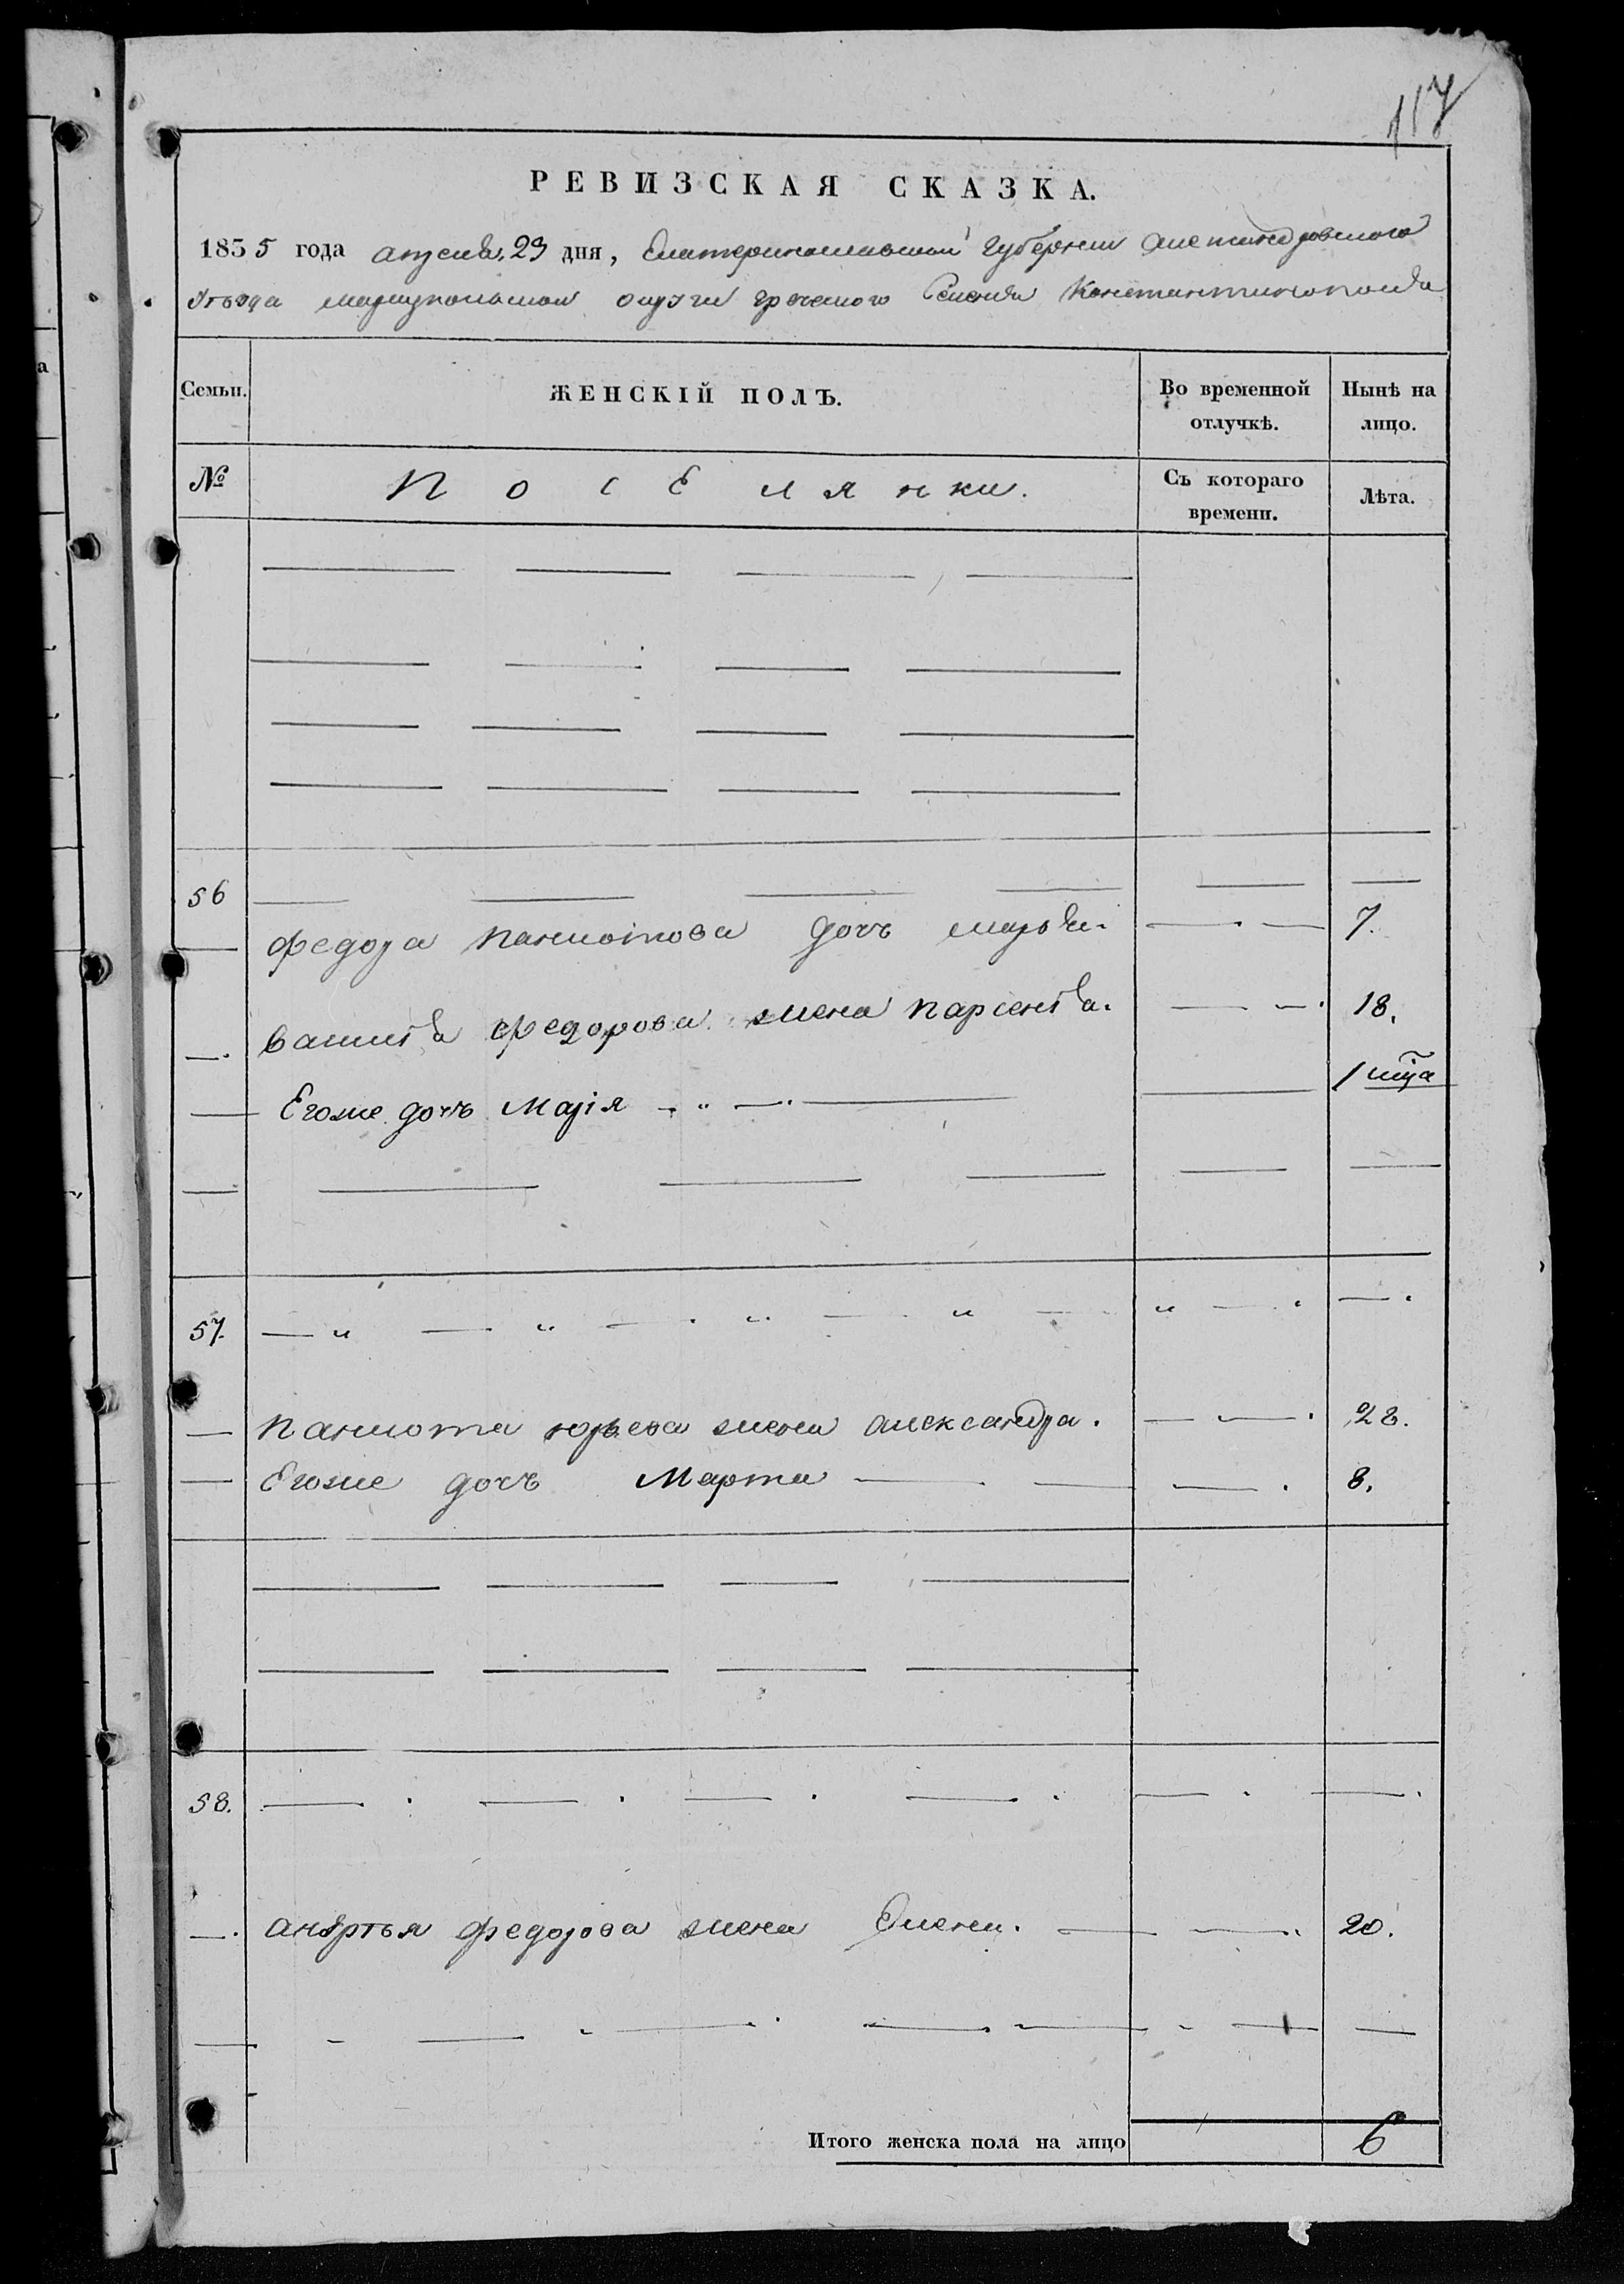 117
РЕВИЗСКАЯ СКАЗКА.
1835 года апреля 29 дня, Екатеринославской Губернии Александровского
Уезда мариупольской округи греческого Селения Константинополя
Семьи. ЖЕНСКІЙ ПОЛЪ. Во временной отлучкѣ. Нынѣ на лицо.
№ Поселянки. Съ котораго времени. Лѣта.
56
— федора паниотова дочь — 7.
—. василя федорова жена — 18.
— Егоже дочь Марія — 1
57.
— паниота юрьева жена александра. — 28.
— Егоже дочъ Марта — 8.
58.
—. федорова жена Елена. — 20.
Итого женска пола на лицо 6